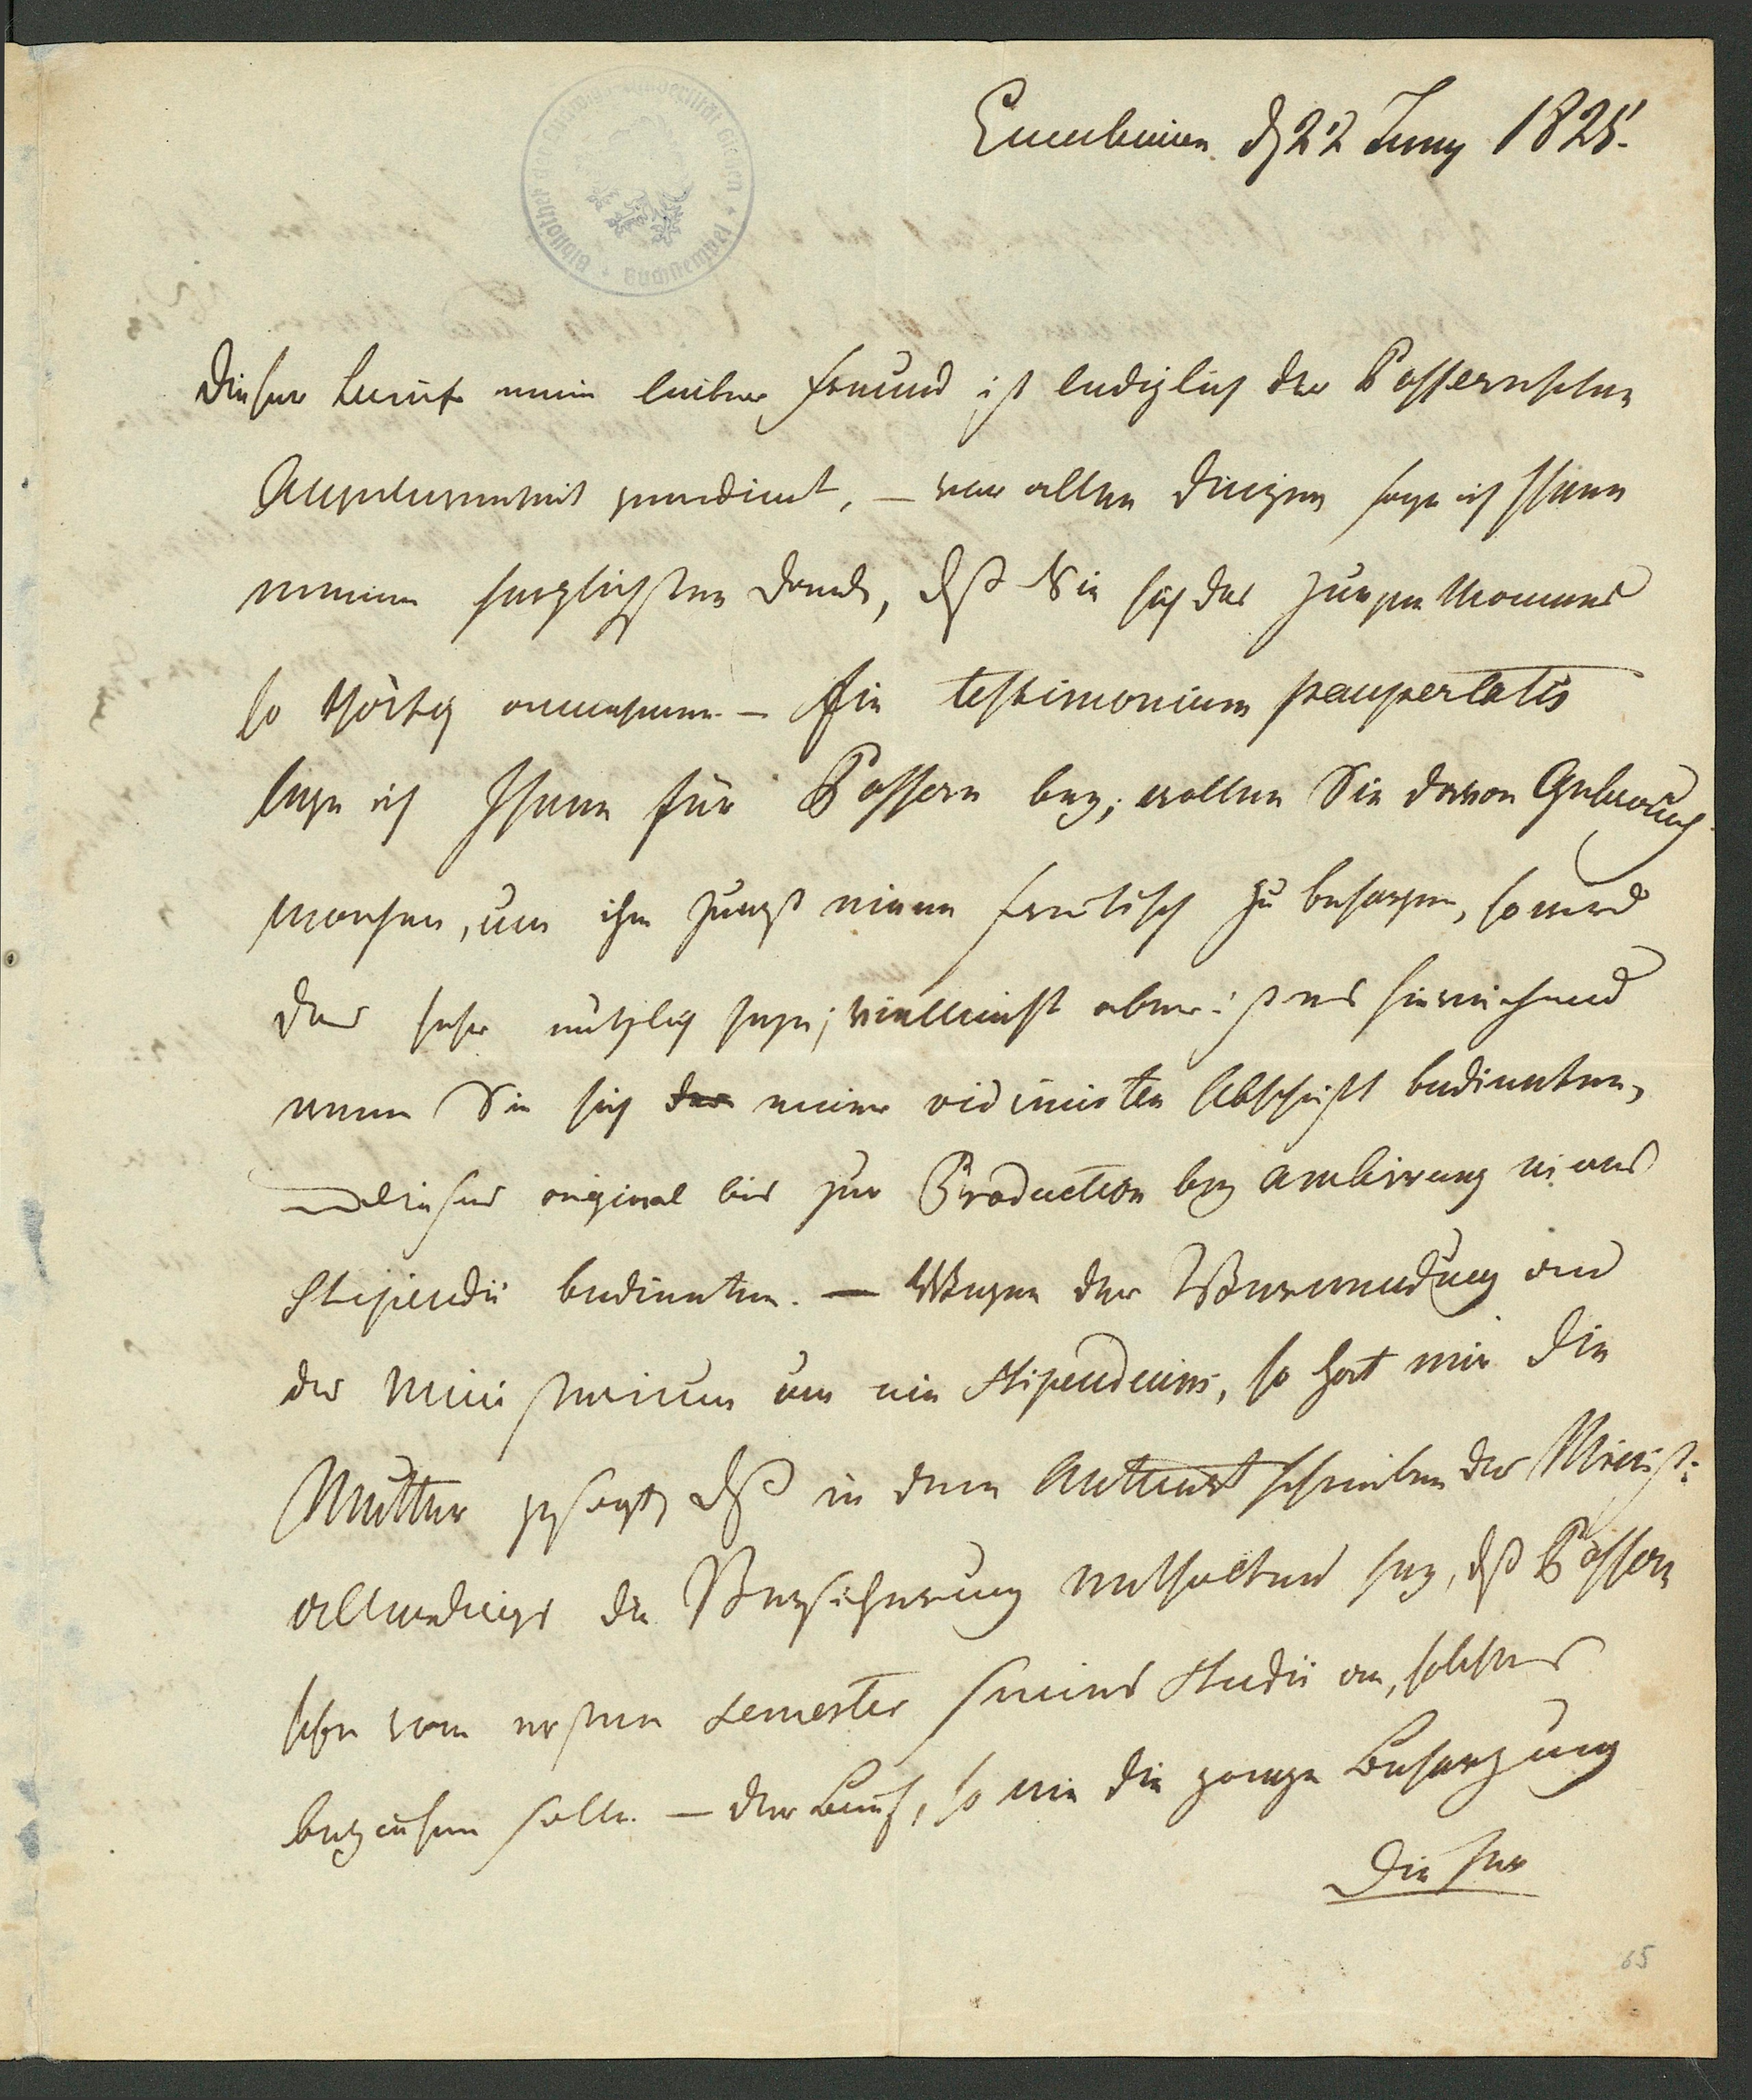 Gumbinnen d 22 Juny 1825.
Dieser Brief mein lieber Freund ist lediglich der Passernschen
Angelegenheit gewidmet, – vor allen Dingen sage ich Ihnen
meinen herzlichsten Dank, dß Sie sich des jungen Mannes
so thätig annehmen – Ein testimonium paupertatis
lege ich Ihnen für Passern bey; wollen Sie davon Gebrauch
machen, um ihm zuerst einen Freitisch zu besorgen, so wird
das sehr nützlich seyn; vielleicht aber ist es hinreichend
wenn Sie sich der einer vidimirten Abschrift bedienten,
dieses original bis zur Production bey ambirung eines
Stipendii bedienten. – Wegen der Verwendung an
das Ministerium um ein Stipendium, so hat mir die
Mutter gesagt, dß in dem Antwortschreiben des Minist:
allerdings die Versicherung enthalten sey, dß Passern
schon vom ersten Semester seines Studii an, solches
beziehen solle. – Der Brief, so wie die ganze Besorgung
dieser
65